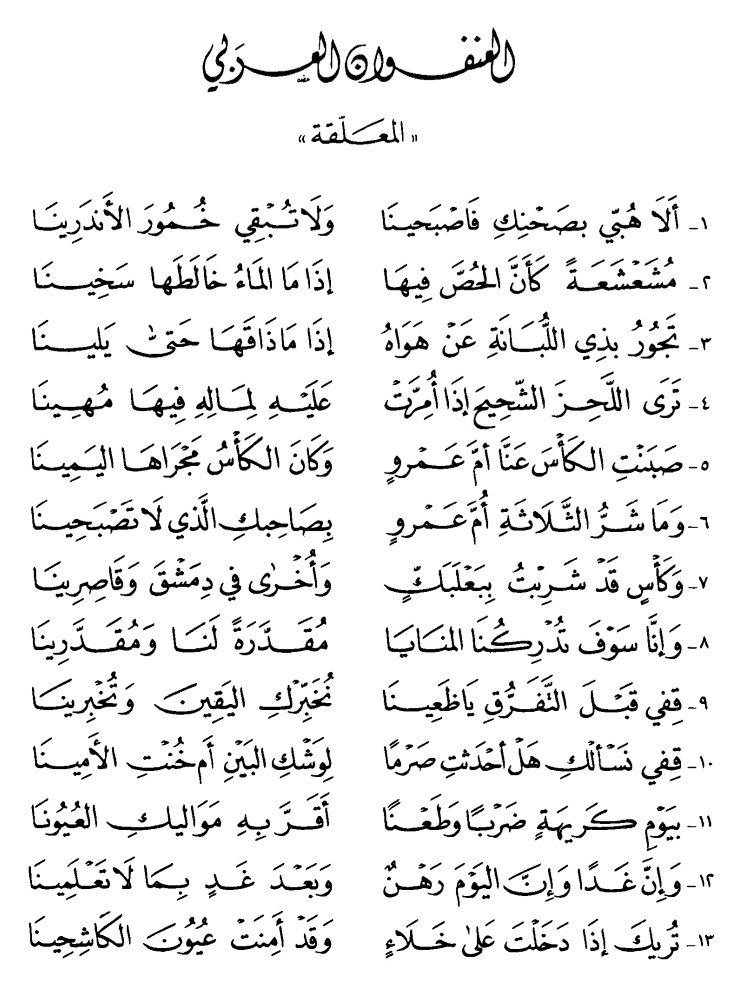 العنفوان العربي
«المعلقة»
١- أَلَا هُبِّي بِصَحْنِكِ فَاصْبَحِينَا وَلَا تُبْقِي خُمُورَ الأَندَرِينَا
٢- مُشَعْشَعَةً كَأَنَّ الحُصَّ فِيهَا إِذَا مَا المَاءُ خَالَطَهَا سَخِينَا
٣- تَجُورُ بِذِي اللُّبَانَةِ عَنْ هَوَاهُ إِذَا مَا ذَاقَهَا حَتَّى يَلِينَا
٤- تَرَى اللَّحِزَ الشَّحِيحَ إِذَا أُمِرَّتْ عَلَيْهِ لِمَالِهِ فِيهَا مُهِينَا
٥- صَبَنْتِ الكَأْسَ عَنَّا أُمَّ عَمْرٍو وَكَانَ الكَأْسُ مَجْرَاهَا اليَمِينَا
٦- وَمَا شَرُّ الثَّلَاثَةِ أُمَّ عَمْرٍو بِصَاحِبِكِ الَّذِي لَا تَصْبَحِينَا
٧- وَكَأْسٍ قَدْ شَرِبْتُ بِبَعْلَبَكٍّ وَأُخْرَى فِي دِمَشْقَ وَقَاصِرِينَا
٨- وَإِنَّا سَوْفَ تُدْرِكُنَا المَنَايَا مُقَدَّرَةً لَنَا وَمُقَدَّرِينَا
٩- قِفِي قَبْلَ التَّفَرُّقِ يَا ظَعِينَا نُخَبِّرْكِ اليَقِينَ وَتُخْبِرِينَا
١٠- قِفِي نَسْأَلْكِ هَلْ أَحْدَثْتِ صَرْمًا لِوَشْكِ البَيْنِ أَم خُنْتِ الأَمِينَا
١١- بِيَوْمِ كَرِيهَةٍ ضَرْبًا وَطَعْنًا أَقَرَّ بِهِ مَوَالِيكِ العُيُونَا
١٢- وَإِنَّ غَدًا وَإِنَّ اليَوْمَ رَهْنٌ وَبَعْدَ غَدٍ بِمَا لَا تَعْلَمِينَا
١٣- تُرِيكَ إِذَا دَخَلْتَ عَلَى خَلَاءٍ وَقَدْ أَمِنَتْ عُيُونَ الكَاشِحِينَا